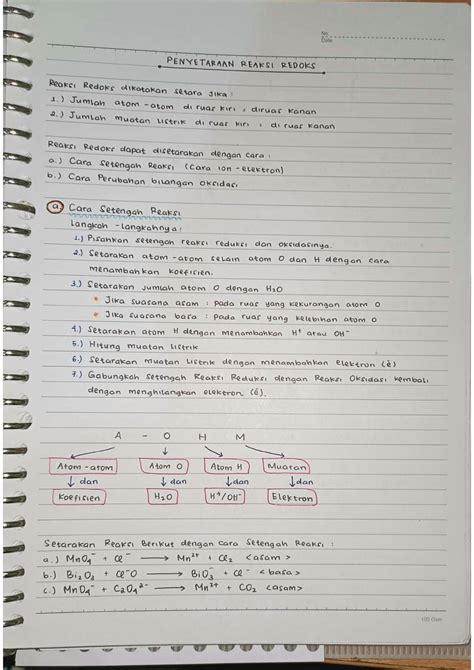 No.
Date
PENYETARAAN REAKSI REDOKS
Reaksi Redoks dikatakan setara jika :
1.) Jumlah atom-atom di ruas kiri = diruas kanan
2.) Jumlah muatan listrik di ruas kiri = di ruas kanan
Reaksi Redoks dapat disetarakan dengan cara :
a.) Cara Setengah Reaksi (Cara ion-elektron)
b.) Cara Perubahan bilangan oksidasi
a. Cara Setengah Reaksi
Langkah-langkahnya :
1.) Pisahkan setengah reaksi reduksi dan oksidasinya.
2.) Setarakan atom-atom selain atom O dan H dengan cara
menambahkan koefisien.
3.) Setarakan jumlah atom O dengan H₂O
• Jika suasana asam : Pada ruas yang kekurangan atom O
• Jika suasana basa : Pada ruas yang kelebihan atom O
4.) Setarakan atom H dengan menambahkan H⁺ atau OH⁻
5.) Hitung muatan listrik
6.) Setarakan muatan listrik dengan menambahkan elektron (ē)
7.) Gabungkan setengah Reaksi Reduksi dengan Reaksi Oksidasi kembali
dengan menghilangkan elektron (ē).
A - O H M
Atom-atom Atom O Atom H Muatan
↓ dan ↓ dan ↓ dan ↓ dan
Koefisien H₂O H⁺/OH⁻ Elektron
Setarakan Reaksi Berikut dengan cara Setengah Reaksi :
a.) MnO₄⁻ + Cl⁻ → Mn²⁺ + Cl₂ <asam>
b.) Bi₂O₃ + Cl⁻O → BiO₃⁻ + Cl⁻ <basa>
c.) MnO₄⁻ + C₂O₄²⁻ → Mn²⁺ + CO₂ <asam>
100 Gsm